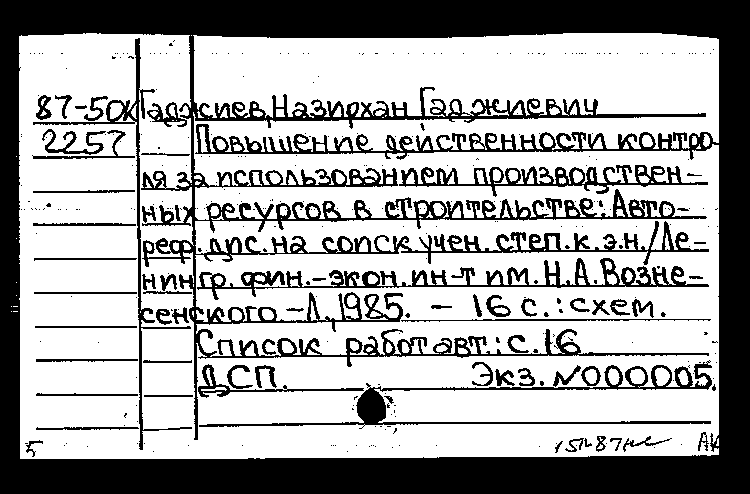 87-50к Гаджиев, Назирхан Гаджиевич
2257 Повышение действенности контро-
ля за использованием производствен-
ных ресурсов в строительстве: Авто-
реф. дис. на соиск. учен. степ. к.э.н. / Ле-
нингр. фин.-экон. ин-т им. Н.А. Возне-
сенского. - Л., 1985. - 16 с.: схем.
Список работ авт.: с. 16
ДСП. Экз. №000005.
5 АК